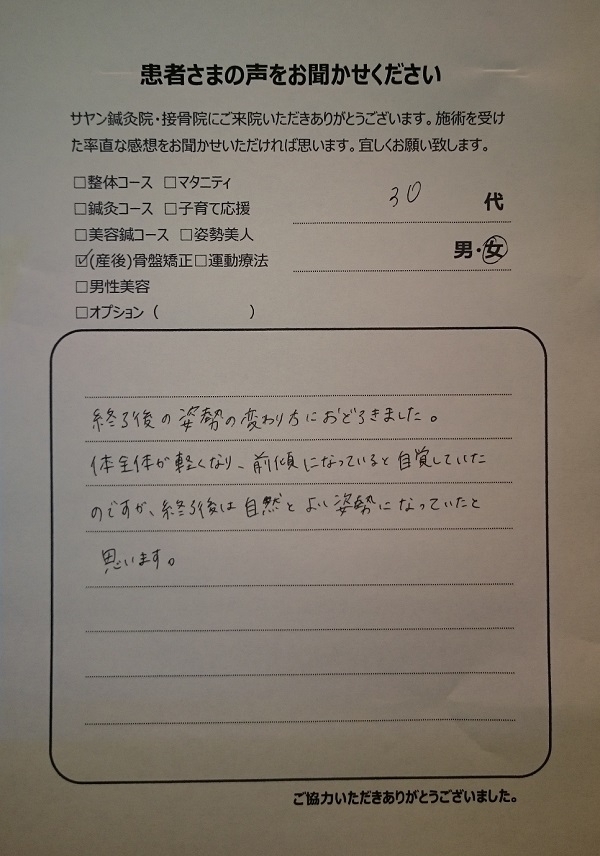 患者さまの声をお聞かせください
サヤン鍼灸院・接骨院にご来院いただきありがとうございます。施術を受け
た率直な感想をお聞かせいただければ思います。宜しくお願い致します。
□整体コース □マタニティ
30 代
□鍼灸コース □子育て応援
□美容鍼コース □姿勢美人
男・女
☑(産後)骨盤矯正□運動療法
□男性美容
□オプション ( )
終了後の姿勢の変わり方におどろきました。
体全体が軽くなり、前傾になっていると自覚していた
のですが、終了後は自然とよい姿勢になっていたと
思います。
ご協力いただきありがとうございました。